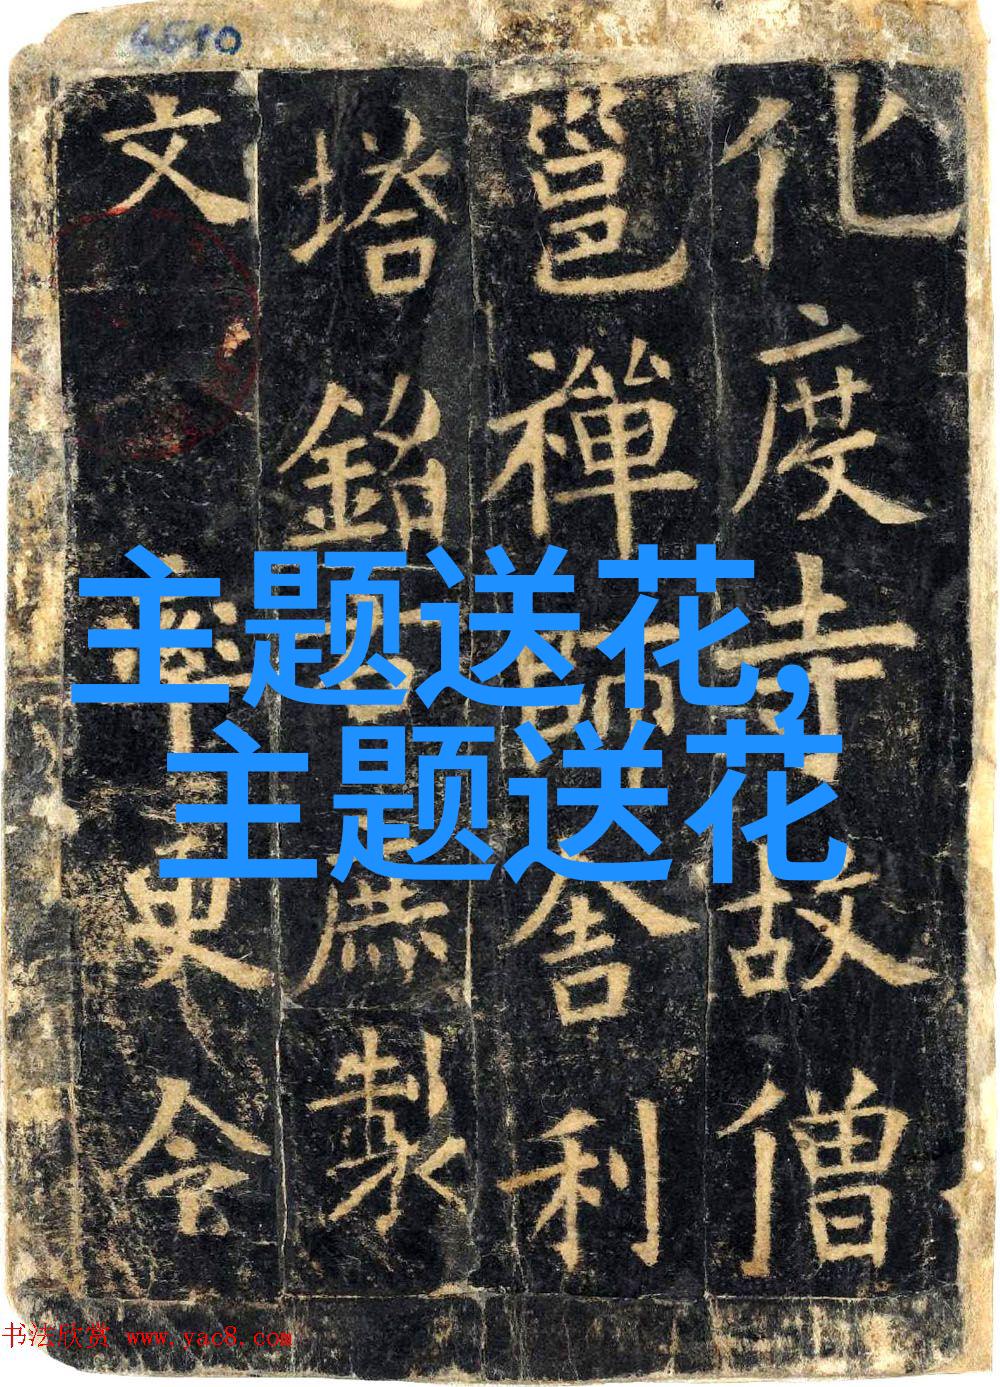 6510
化度寺故僧
邕禪師舍利
塔銘庶製
文率更令
主题送花,
主题送花
书法欣赏 www.yac8.com